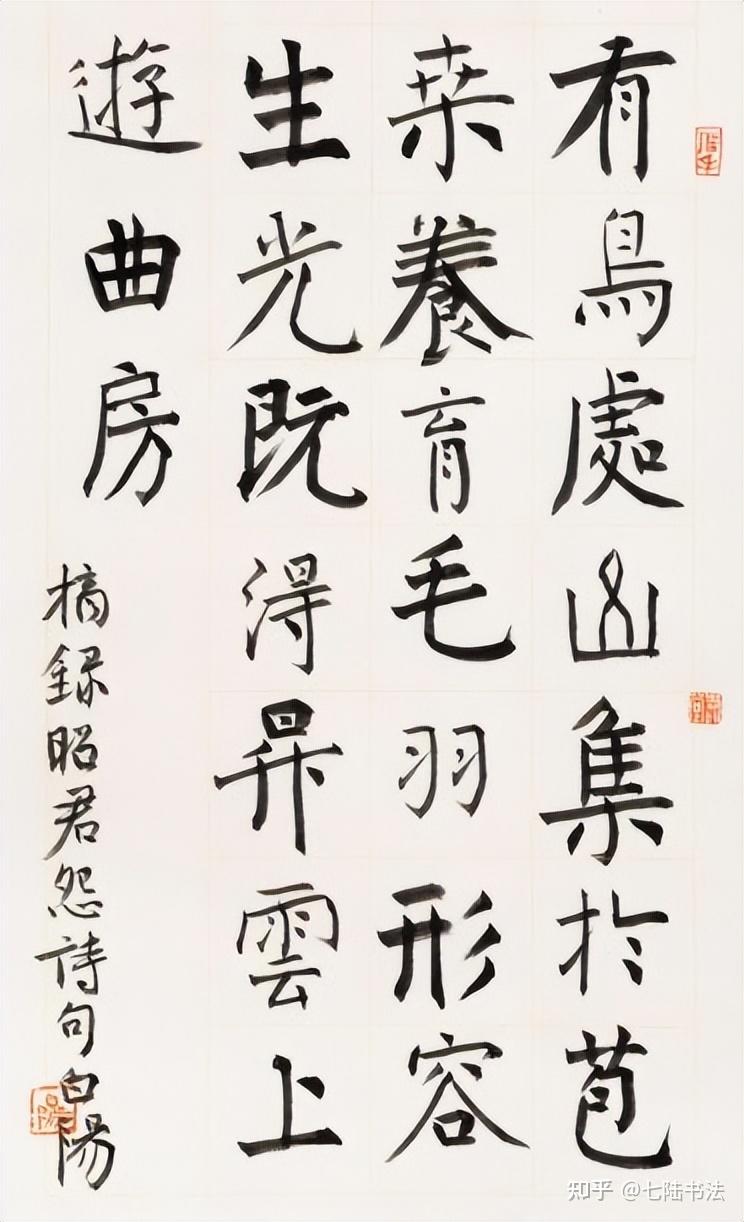 有鳥處山集於苞
桒養育毛羽形容
生光既得昇雲上
遊曲房
摘録昭君怨詩句白陽
知乎 @七陆书法